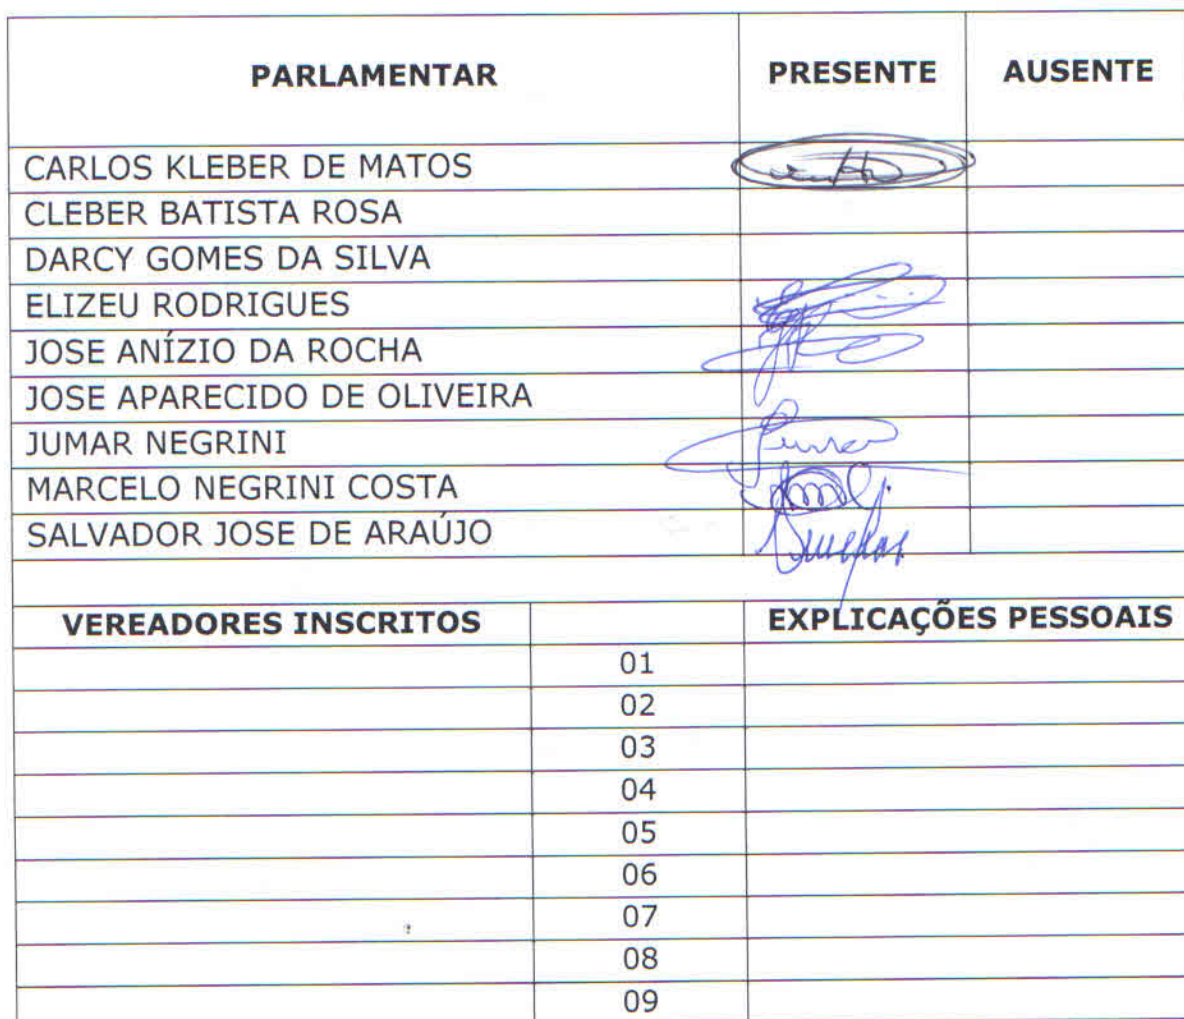 PARLAMENTAR PRESENTE AUSENTE
CARLOS KLEBER DE MATOS
CLEBER BATISTA ROSA
DARCY GOMES DA SILVA
ELIZEU RODRIGUES
JOSE ANÍZIO DA ROCHA
JOSE APARECIDO DE OLIVEIRA
JUMAR NEGRINI
MARCELO NEGRINI COSTA
SALVADOR JOSE DE ARAÚJO
VEREADORES INSCRITOS EXPLICAÇÕES PESSOAIS
01
02
03
04
05
06
07
08
09